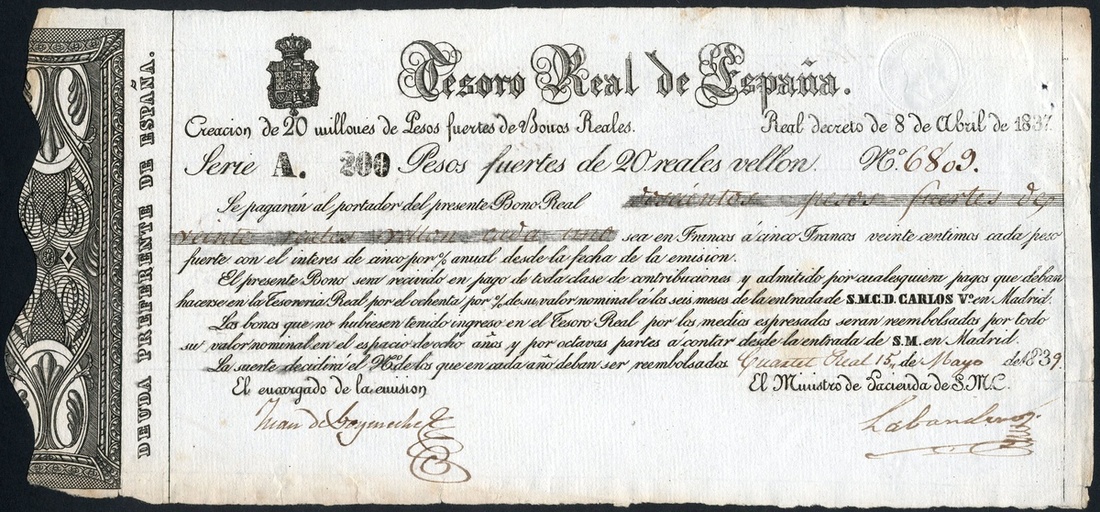 DEUDA PREFERENTE DE ESPAÑA.
Tesoro Real de España.
Creacion de 20 millones de Pesos fuertes de Bonos Reales. Real decreto de 8 de Abril de 1837.
Serie A. 200 Pesos fuertes de 20 reales vellon. Nº. 6809.
Se pagarán al portador del presente Bono Real doscientos pesos fuertes de
veinte reales vellon cada uno sea en Francos á cinco Francos veinte centimos cada peso
fuerte con el interes de cinco por % anual desde la fecha de la emision.
El presente Bono sera recivido en pago de toda clase de contribuciones y admitido por cualesquiera pagos que deban
hacerse en la Tesoreria Real por el ochenta por % de su valor nominal a los seis meses de la entrada de S.M.C.D. CARLOS Vº. en Madrid.
Los bonos que no hubiesen tenido ingreso en el Tesoro Real por los medios espresados seran reembolsados por todo
su valor nominal en el espacio de ocho años y por octavas partes a contar desde la entrada de S.M. en Madrid.
La suerte decidirá el Nº de los que en cada año deban ser reembolsados Cuartel Real 15 de Mayo de 1839.
El encargado de la emision El Ministro de Hacienda de S.M.C.
Juan de Labandero